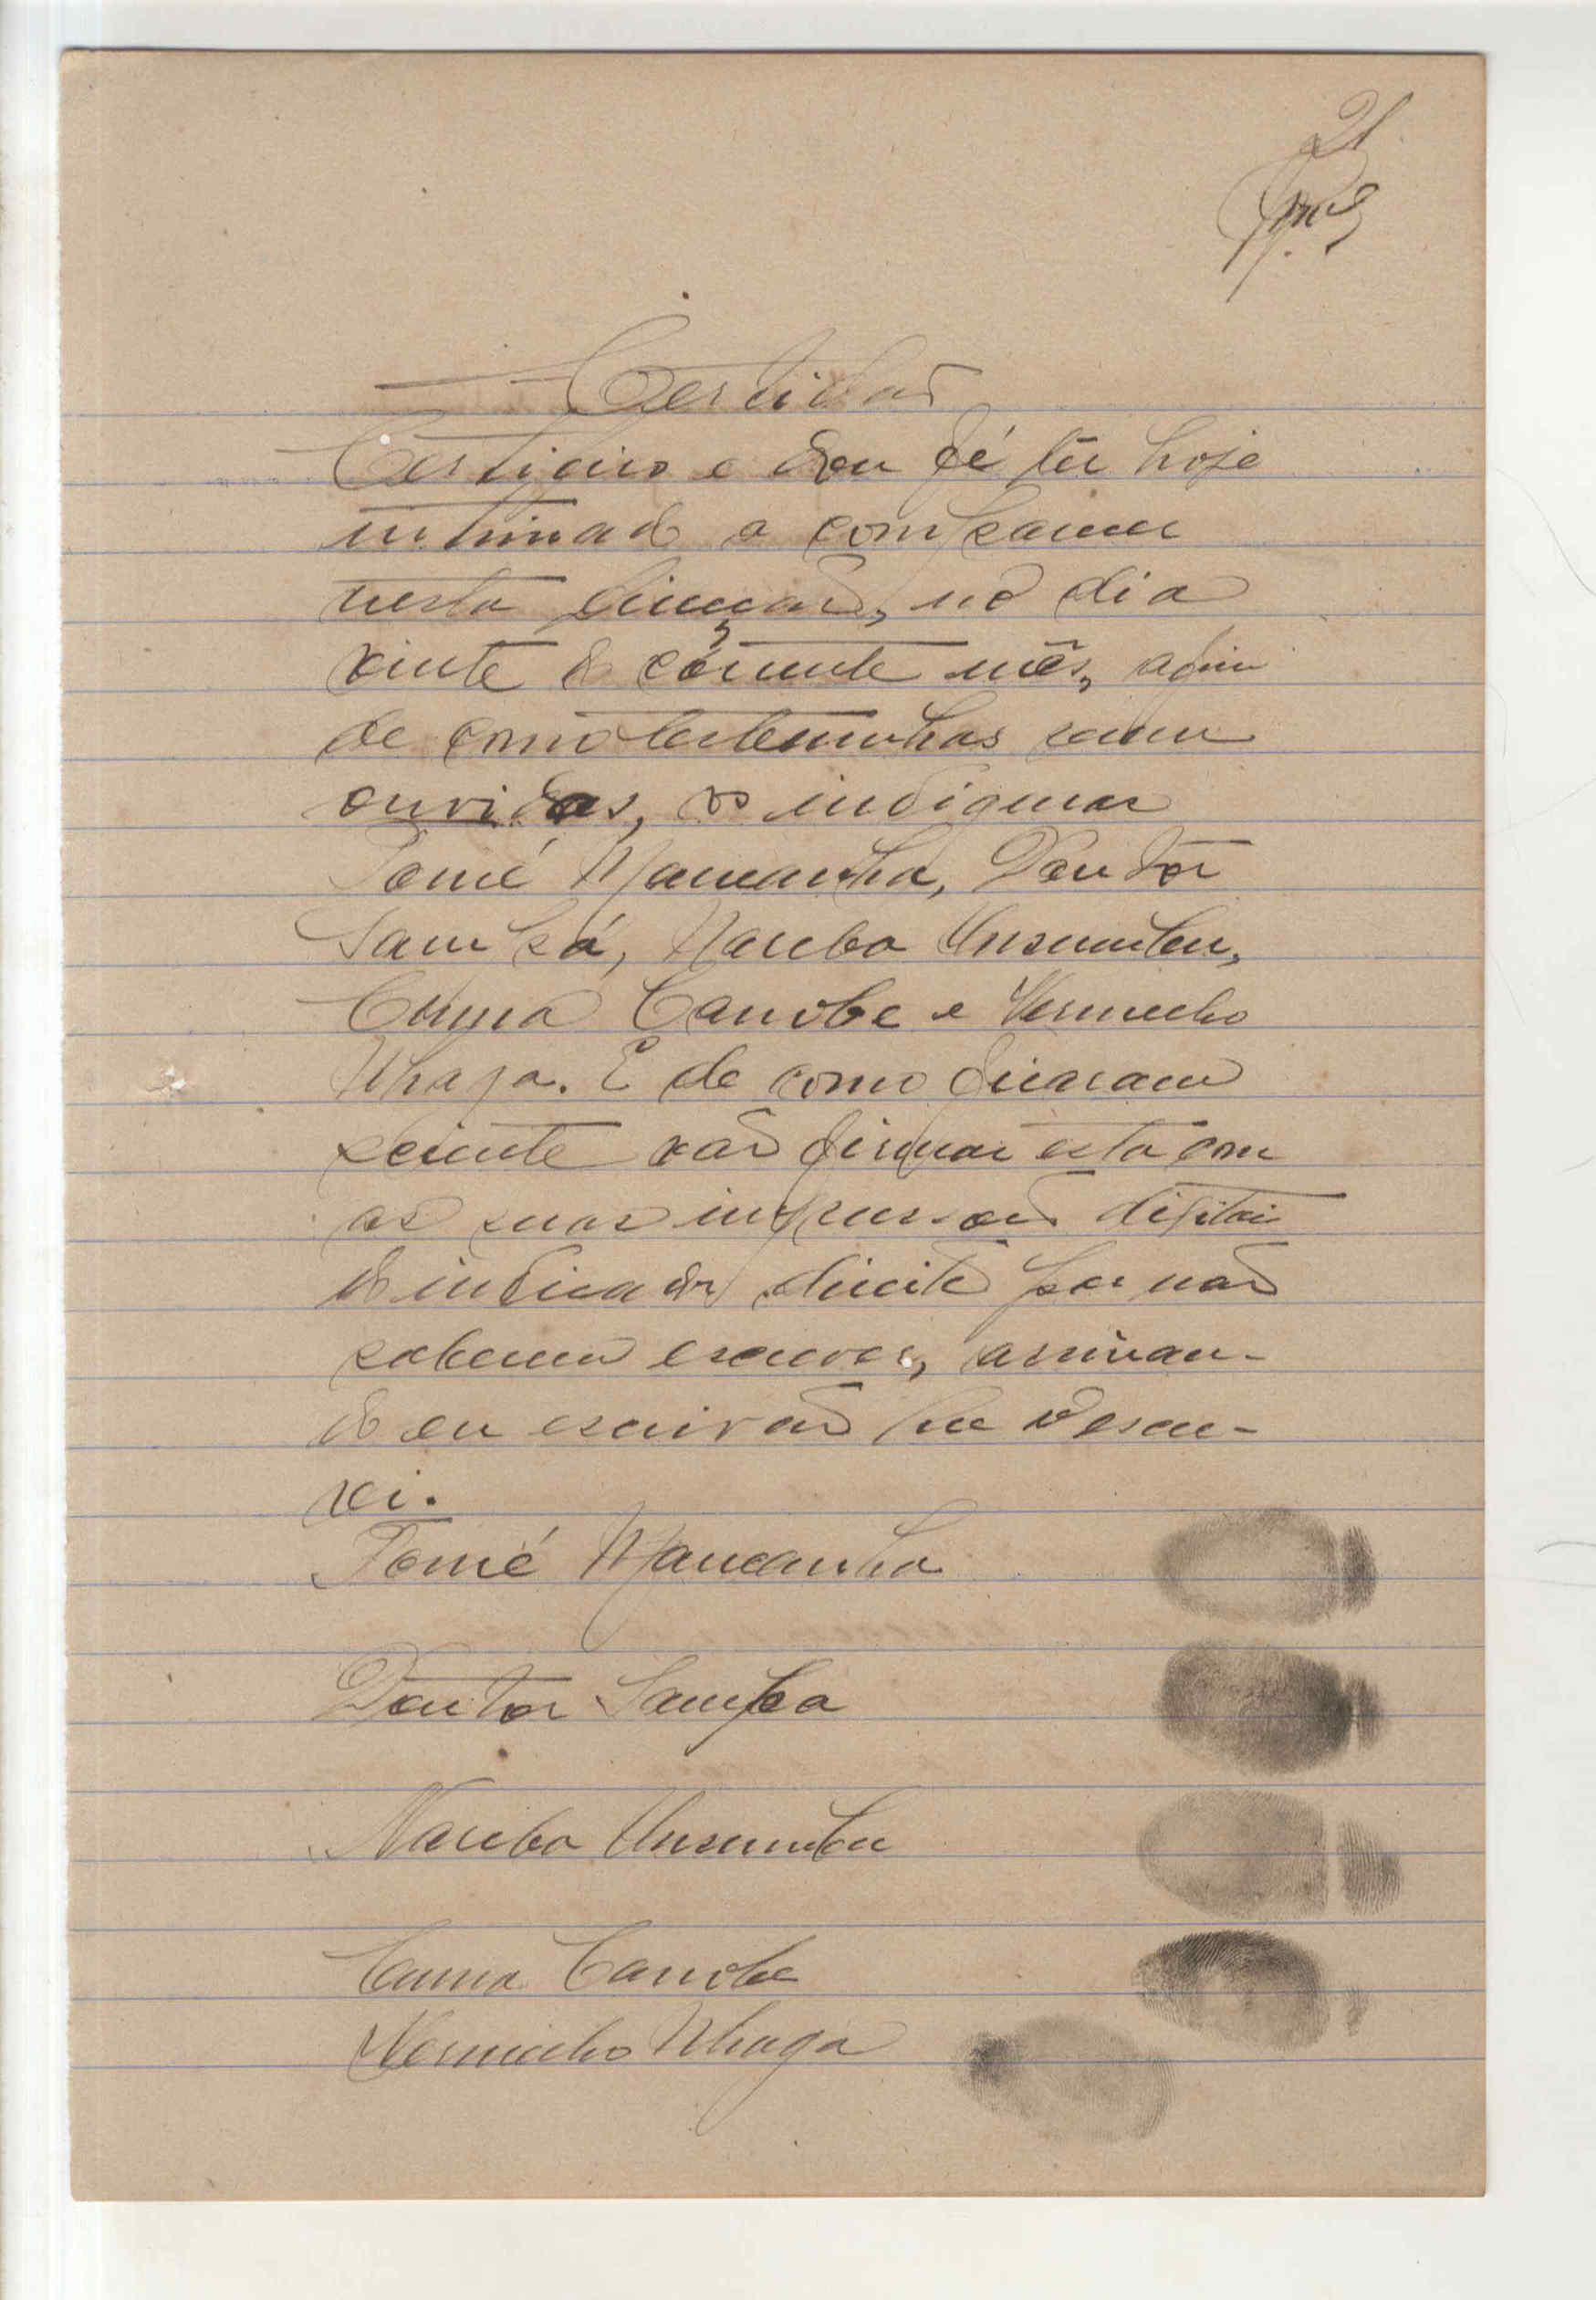 21
Certidão
Certifico e dou fé ter hoje
intimado a comparecer
nesta Direcção, no dia
vinte do corrente mês, afim
de como testemunhas serem
ouvidas, os indigenas
Tomé Mancanha, Doutor
Sampá, Nareba Unsumbu,
Cuma Canobe e Vermelho
Nhaga. E de como ficaram
sciente vão firmar esta com
as suas impressões digitais
do indicador direito por não
saberem escrever, assinan-
do eu escrivão que o escre-
vi.
Tomé Mancanha
Doutor Sampa
Nareba Unsumbu
Cuma Canobe
Vermelho Nhaga